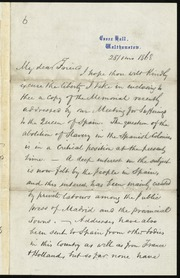 6
Essex Hall,
Walthamstow.
25/ 1mo 1868
My dear Friend
I hope thou wilt kindly
excuse the liberty I take in enclosing to
thee a copy of the Memorial recently
addressed by our Meeting for Sufferings
to the Queen of Spain. The question of the
abolition of Slavery in the Spanish Colonies
is in a critical position at the present
time – A deep interest in the subject
is now felt by the people in Spain,
and this interest has been mainly raised
by private labours among the Public
press of Madrid and the provincial
Towns. – Addresses have also
been sent to Spain from other bodies
in this Country as well as from France
& Holland but so far none have